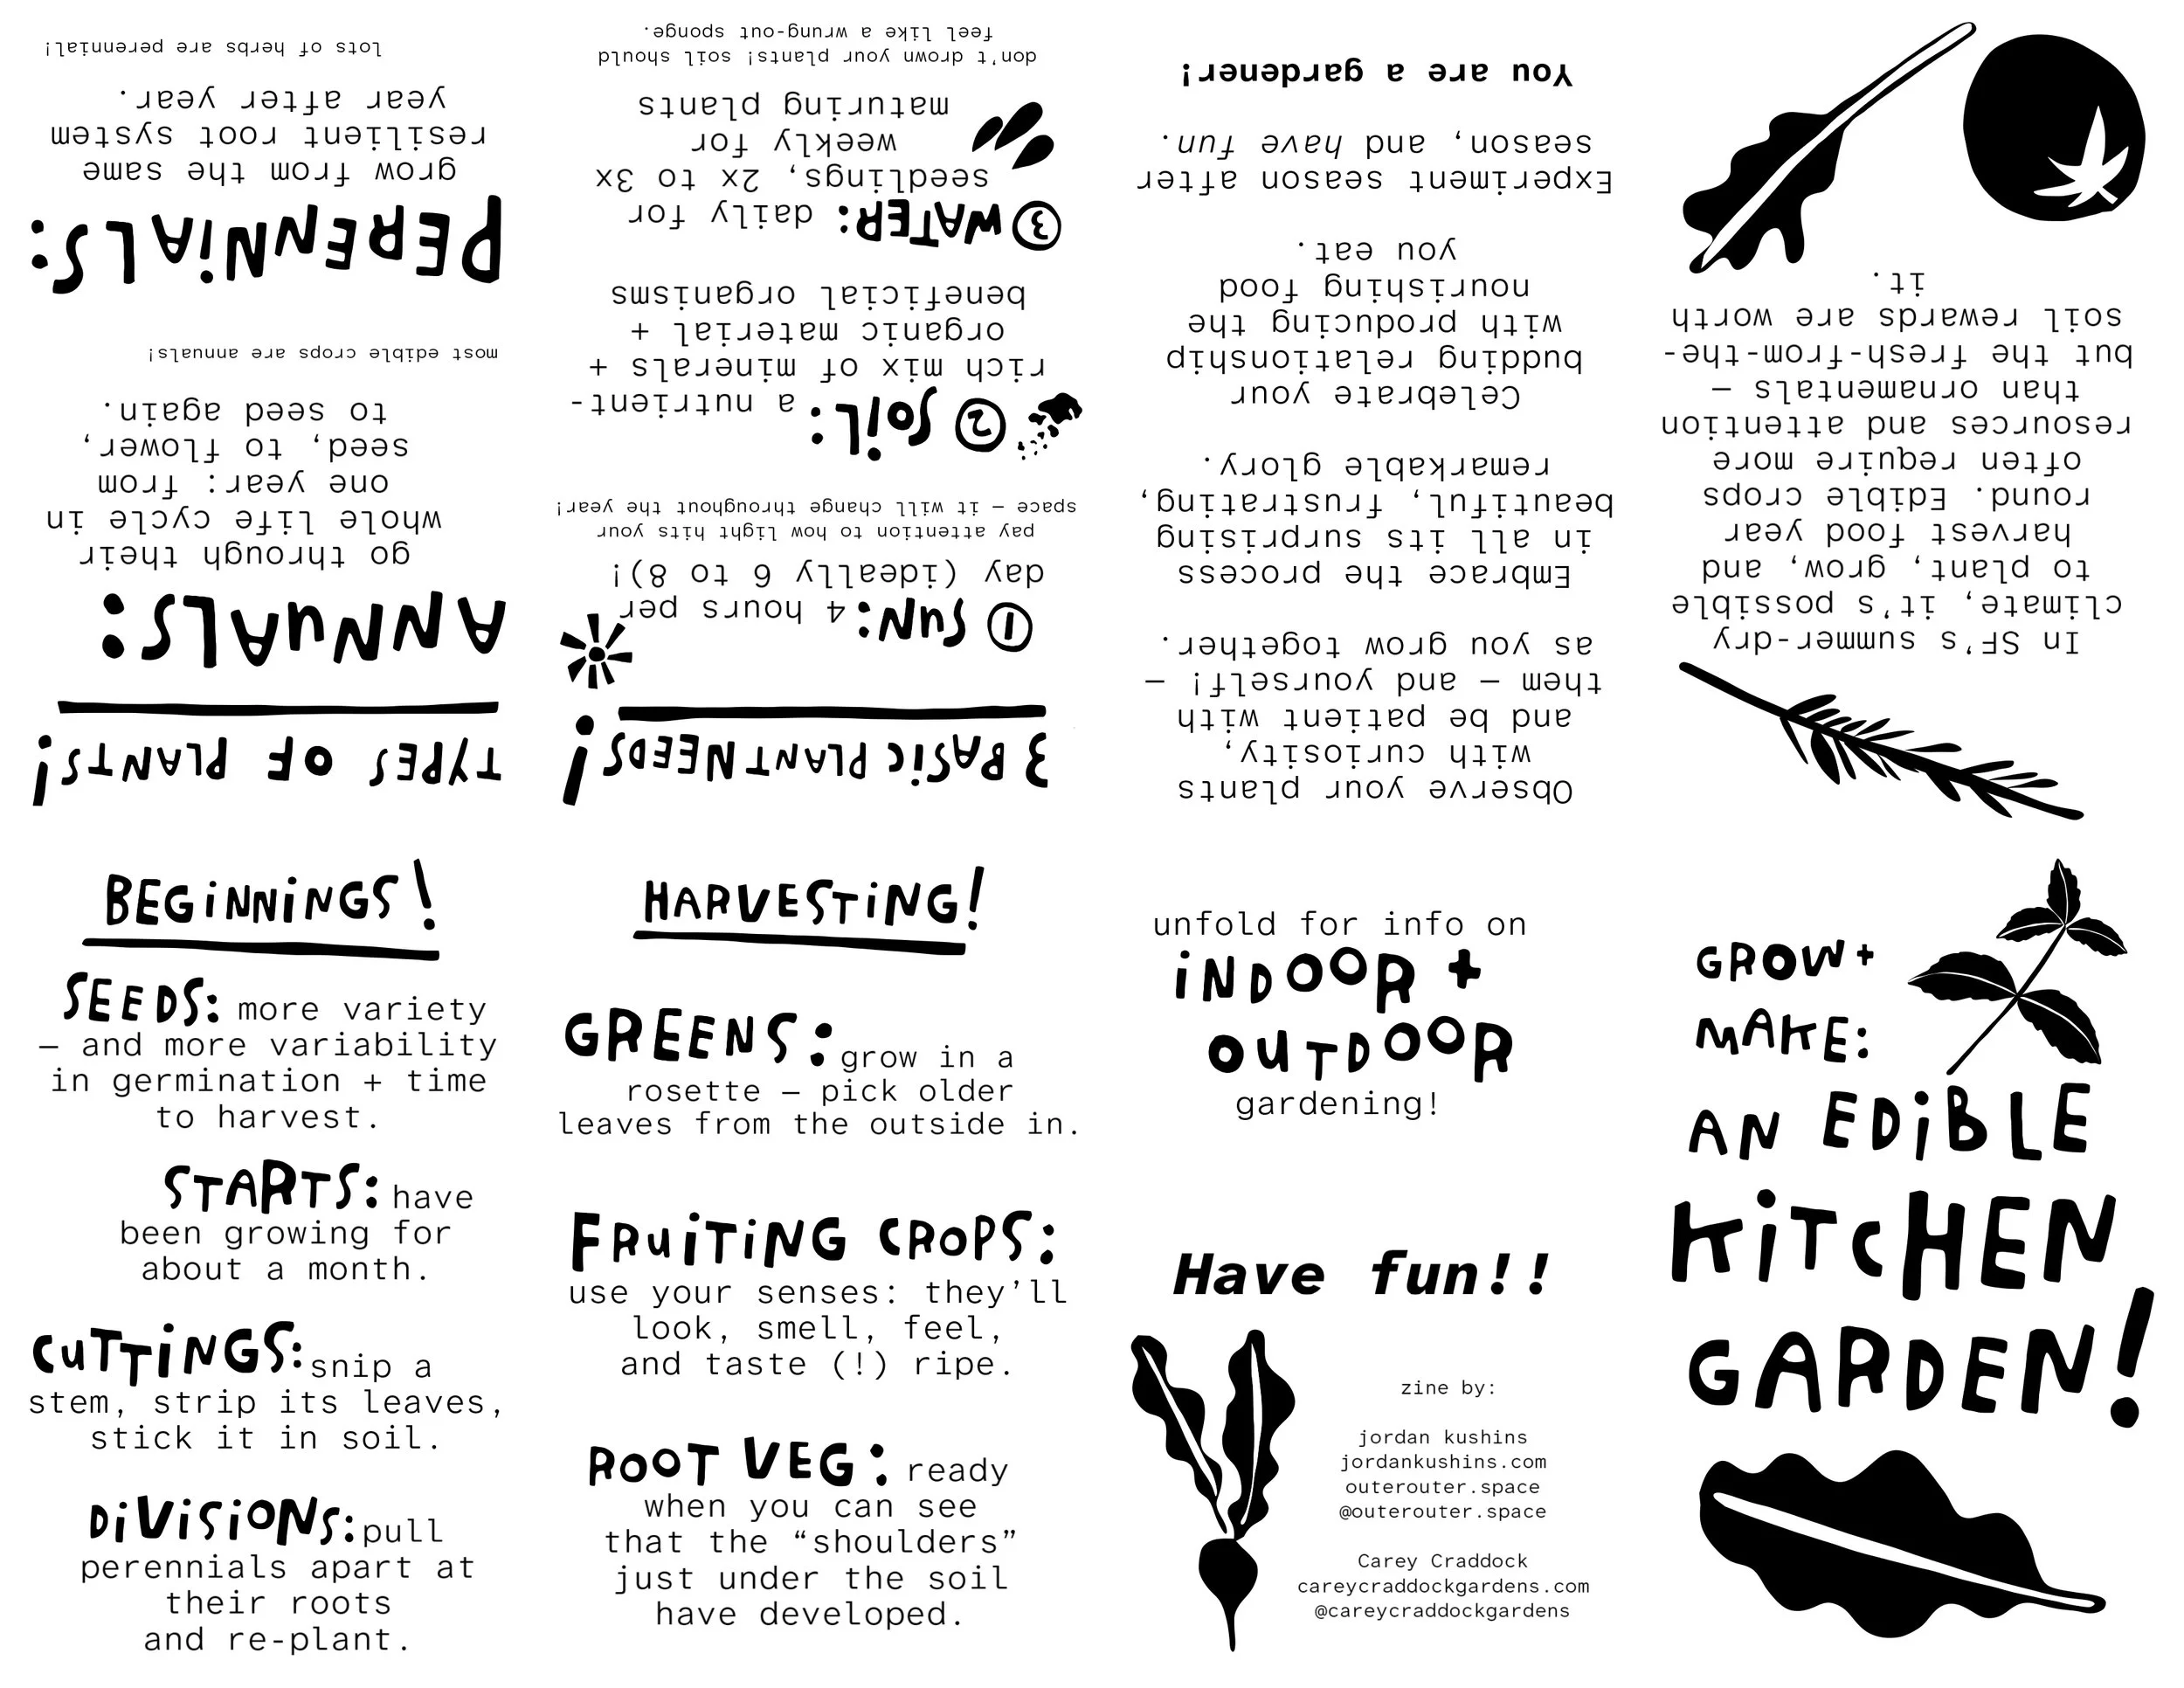 GROW +
MAKE:
AN EDiBLE
KiTCHEN
GARDEN!
In SF's summer-dry
climate, it's possible
to plant, grow, and
harvest food year
round. Edible crops
often require more
resources and attention
than ornamentals —
but the fresh-from-the-
soil rewards are worth
it.
Observe your plants
with curiosity,
and be patient with
them — and yourself! —
as you grow together.
Embrace the process
in all its surprising
beautiful, frustrating,
remarkable glory.
Celebrate your
budding relationship
with producing the
nourishing food
you eat.
Experiment season after
season, and have fun.
You are a gardener!
3 BASiC PLANT NEEDS!
① SuN: 4 hours per
day (ideally 6 to 8)!
pay attention to how light hits your
space — it will change throughout the year!
② SOiL: a nutrient-
rich mix of minerals +
organic material +
beneficial organisms
③ WATER: daily for
seedlings, 2x to 3x
weekly for
maturing plants
don't drown your plants! soil should
feel like a wrung-out sponge.
TYPES OF PLANTS!
ANNuALS:
go through their
whole life cycle in
one year: from
seed, to flower,
to seed again.
most edible crops are annuals!
PERENNiALS:
grow from the same
resilient root system
year after year.
lots of herbs are perennial!
BEGiNNiNGS!
SEEDS: more variety
— and more variability
in germination + time
to harvest.
STARTS: have
been growing for
about a month.
CuTTiNGS: snip a
stem, strip its leaves,
stick it in soil.
DiViSiONS: pull
perennials apart at
their roots
and re-plant.
HARVESTiNG!
GREENS: grow in a
rosette — pick older
leaves from the outside in.
FRuiTiNG CROPS:
use your senses: they’ll
look, smell, feel,
and taste (!) ripe.
ROOT VEG: ready
when you can see
that the “shoulders”
just under the soil
have developed.
unfold for info on
iNDOOR +
OUTDOOR
gardening!
Have fun!!
zine by:
jordan kushins
jordankushins.com
outerouter.space
@outerouter.space
Carey Craddock
careycraddockgardens.com
@careycraddockgardens